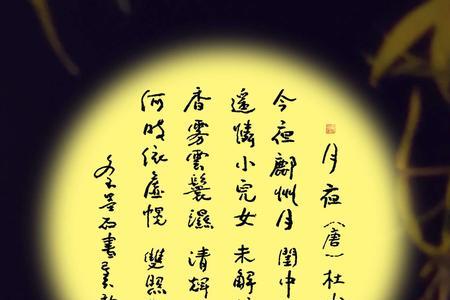 月夜（唐）杜
今夜鄜州月 閨中
遙憐小兒女 未解
香霧雲鬟濕 清輝
何時依虛幌 雙照
書